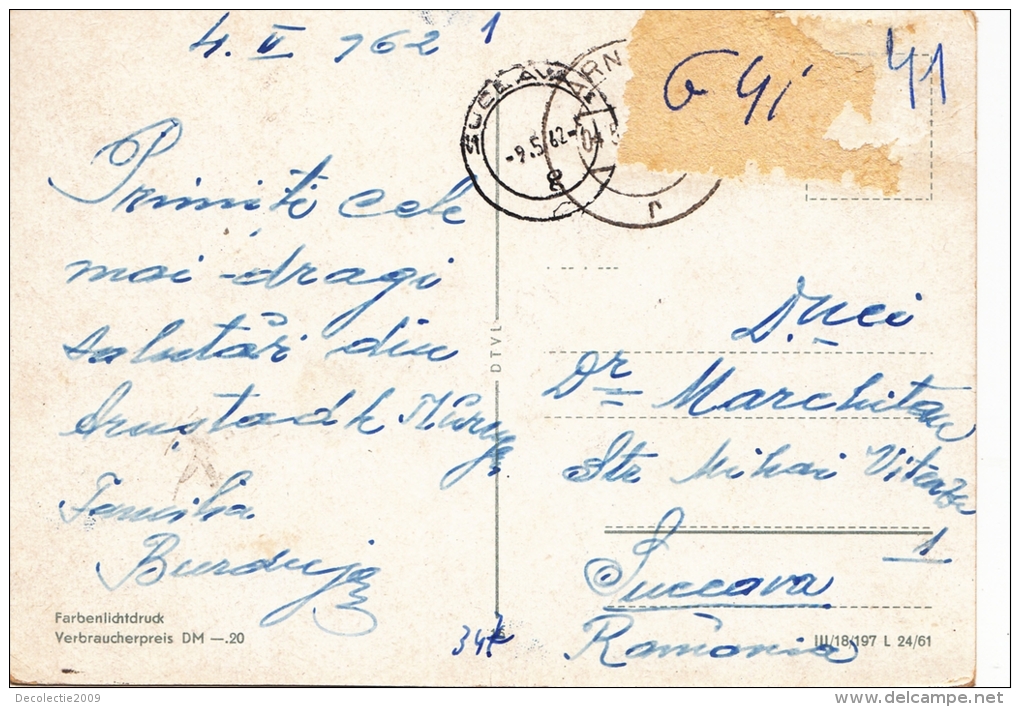 4. V 962
1
SUCEAVA
-9.5.62-
8
ARN
04 5
r
G 41
41
Primiti cele
mai dragi
salutări din
Arnstadt
Familia
Burduja
DTVL
D.nei
Dr Marchitan
Str Mihai Viteazu
1
Succava
România
Farbenlichtdruck
Verbraucherpreis DM —.20
III/18/197 L 24/61
Decolectie2009
delcampe.net